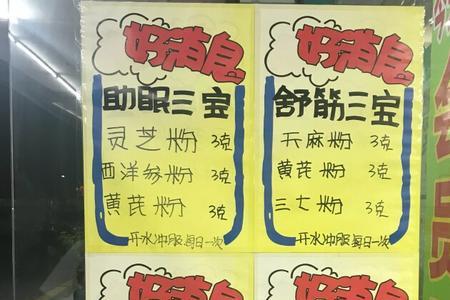 好消息
助眠三宝
灵芝粉 3克
西洋参粉 3克
黄芪粉 3克
开水冲服每日一次
好消息
舒筋三宝
天麻粉 3克
黄芪粉 3克
三七粉 3克
开水冲服每日一次
好消息
好消息